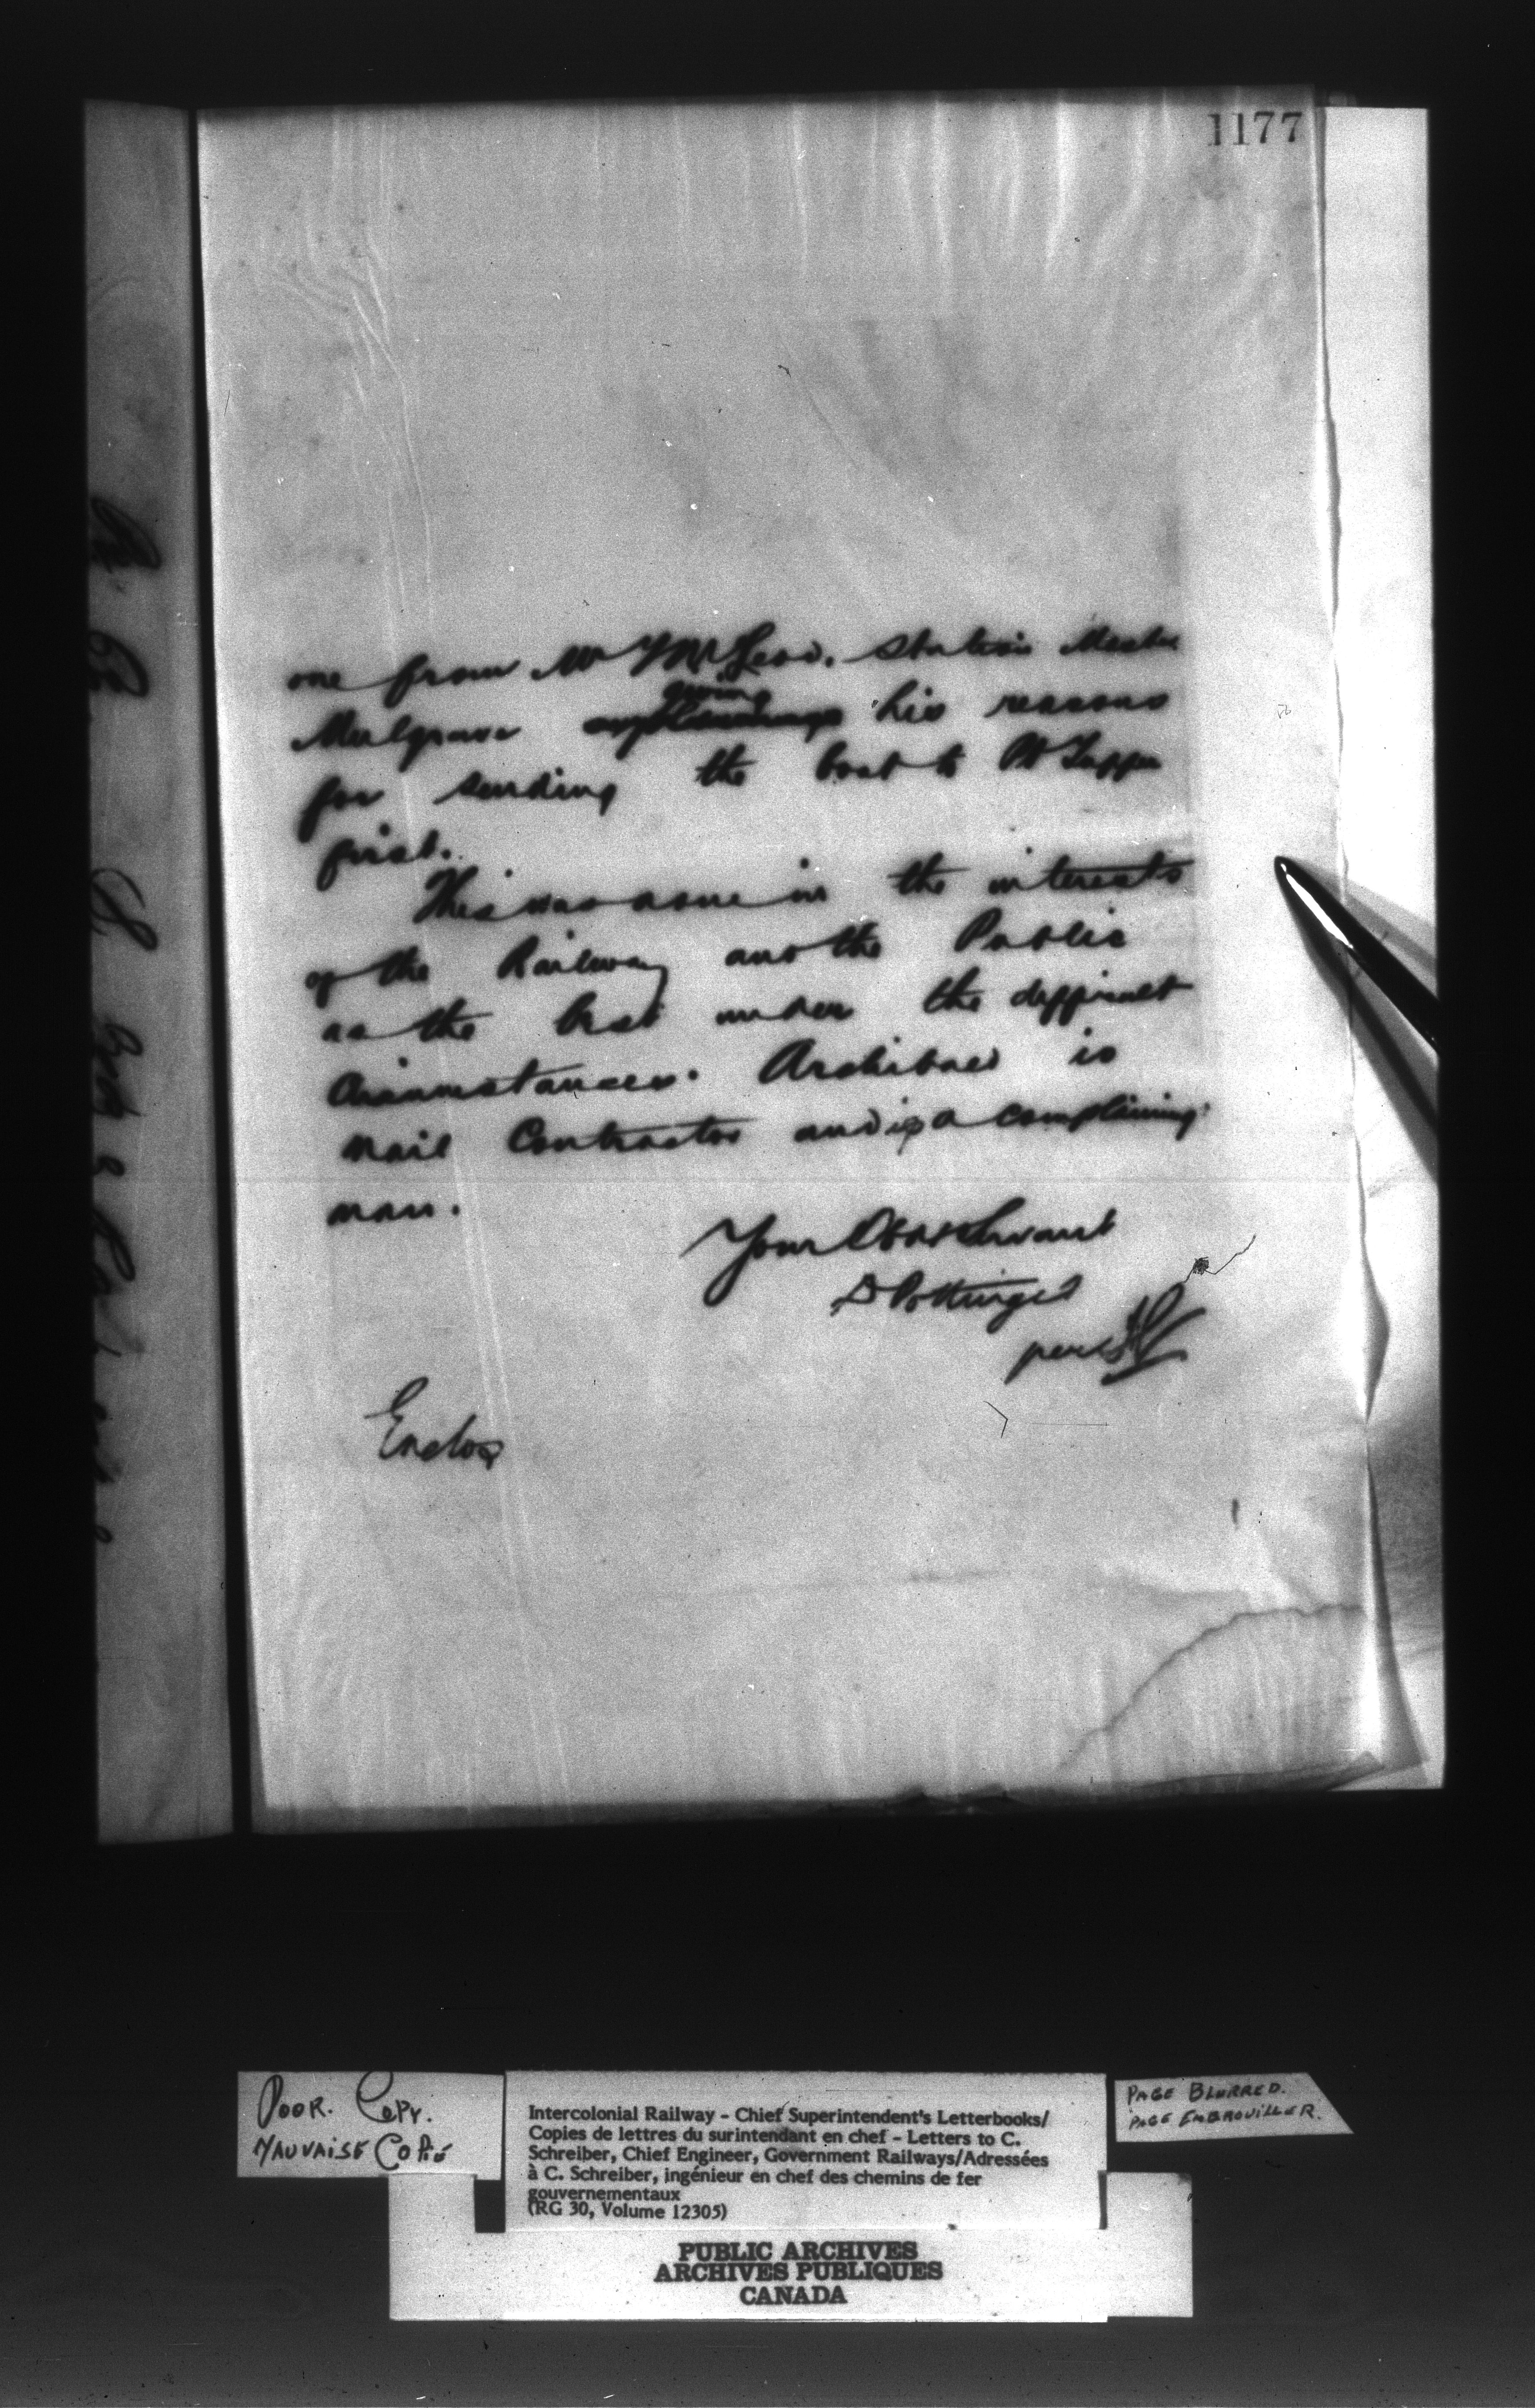 1177
one from Mr McLeod. Station Master
Mulgrave giving his reasons
for sending the boat to Pt Tupper
first.
This was done in the interests
of the Railway and the Public
as the best under the difficult
Circumstances. Archibald is
Mail Contractor and is a complaining
man.
Your Obdt Servant
D Pottinger
per
Enclos
POOR. COPY.
MAUVAISE COPIE
Intercolonial Railway - Chief Superintendent's Letterbooks/
Copies de lettres du surintendant en chef - Letters to C.
Schreiber, Chief Engineer, Government Railways/Adressées
à C. Schreiber, ingénieur en chef des chemins de fer
gouvernementaux
(RG 30, Volume 12305)
PAGE BLURRED.
PAGE EMBROUILLER.
PUBLIC ARCHIVES
ARCHIVES PUBLIQUES
CANADA